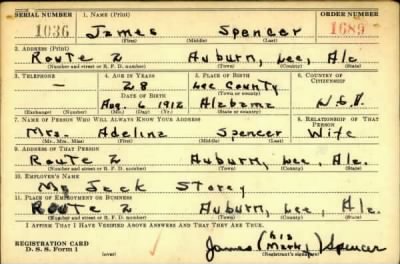 SERIAL NUMBER 1. NAME (Print) ORDER NUMBER
1036 James Spencer 1689
(First) (Middle) (Last)
2. ADDRESS (Print)
Route 2 Auburn, Lee, Ala.
(Number and street or R. F. D. number) (Town) (County) (State)
3. TELEPHONE 4. AGE IN YEARS 5. PLACE OF BIRTH 6. COUNTRY OF CITIZENSHIP
— 28 Lee County
DATE OF BIRTH (Town or county)
Aug. 6 1912 Alabama U.S.A.
(Exchange) (Number) (Mo.) (Day) (Yr.) (State or country)
7. NAME OF PERSON WHO WILL ALWAYS KNOW YOUR ADDRESS 8. RELATIONSHIP OF THAT PERSON
Mrs. Adeline Spencer Wife
(Mr., Mrs., Miss) (First) (Middle) (Last)
9. ADDRESS OF THAT PERSON
Route 2 Auburn, Lee, Ala.
(Number and street or R. F. D. number) (Town) (County) (State)
10. EMPLOYER'S NAME
Mr Jack Storey
11. PLACE OF EMPLOYMENT OR BUSINESS
Route 2 Auburn, Lee, Ala.
(Number and street or R. F. D. number) (Town) (County) (State)
I AFFIRM THAT I HAVE VERIFIED ABOVE ANSWERS AND THAT THEY ARE TRUE.
REGISTRATION CARD
D. S. S. Form 1 (over) James (his Mark) Spencer
(Registrant's signature)